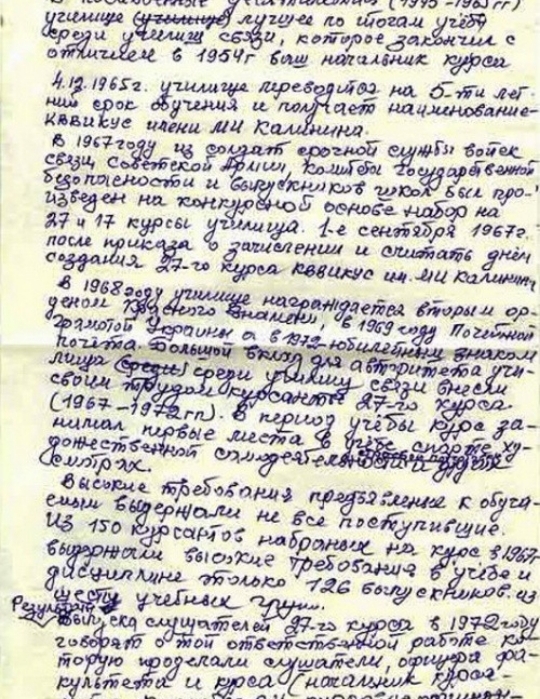 В послевоенные десятилетия (1945-1965гг)
училище (училище) лучшее по итогам учёбы
среди училищ связи, которое закончил с
отличием в 1954г ваш начальник курса
4.12.1965г. училище переводится на 5-ти лет-
ний срок обучения и получает наименование-
КВВИКУС имени МИ Калинина.
В 1967году из солдат срочной службы войск
связи Советской Армии, Комитета Государственной
безопасности и выпускников школ был про-
изведен на конкурсной основе набор на
27 и 17 курсы училища. 1-е сентября 1967г.
после приказа о зачислении и считать днём
создания 27-го курса КВВИКУС им. МИ Калинин
В 1968году училище награждается вторым ор-
деном Красного Знамени, в 1969 году Почетной
грамотой Украины а в 1972-юбилейным знаком
почёта. Большой вклад для авторитета учи-
лища (среди) среди училищ связи внесли
своим трудом курсанты 27-го курса.
(1967-1972гг). В период учёбы курс за-
нимал первые места в учёбе, спорте, ху-
дожественной самодеятельности и других
смотрах.
Высокие требования предъявленные к обуча-
емым выдержали не все поступившие.
Из 150 курсантов набраных на курс в 1967г
выдержали высокие требования в учёбе и
дисциплине только 126 выпускников из
шести учебных групп.
Результат
выпуска слушателей 27-го курса в 1972году
говорят о той ответственной работе ко-
торую проделали слушатели, офицеры фа-
культета и курса (начальник курса-